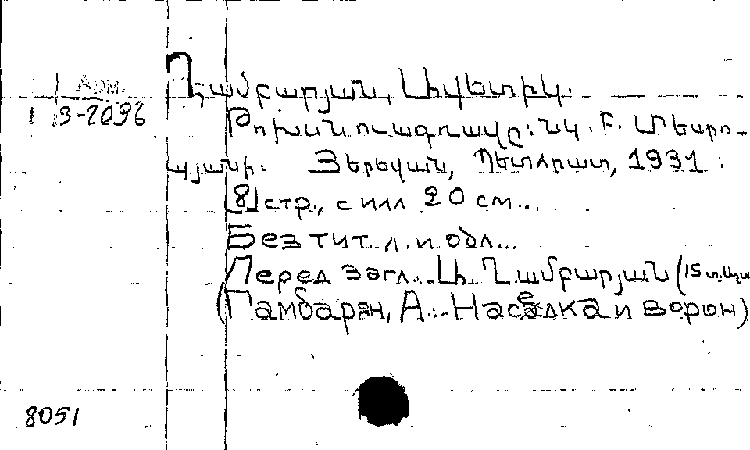 Арм.
1 В-2096
Ղամբարյան, Լիվետրիկ.
Թուխսն ու ագռավը: նկ. Բ. Մեսրո-
պյանի. Յերեվան, Պետհրատ, 1931:
[8] стр., с илл 20 см..
Без тит. л. и обл...
Перед загл.. Լի Ղամբարյան (15 տ.
(Гамбарян, А... Наседка и ворон)
8051